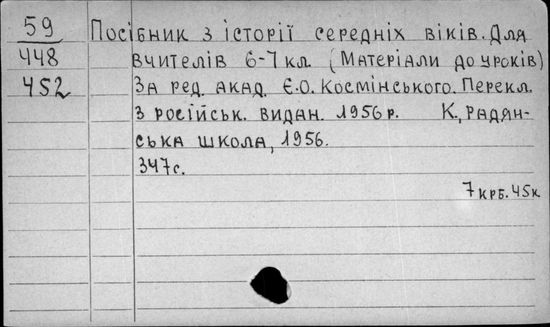 59
448
452
Посібник з історії середніх віків. Для
вчителів 6-7 кл. (Матеріали до уроків)
За ред. акад. Є.О. Космінського. Перекл.
з російськ. видан. 1956 р. К., радян-
ська школа, 1956.
347с.
7 крб. 45к